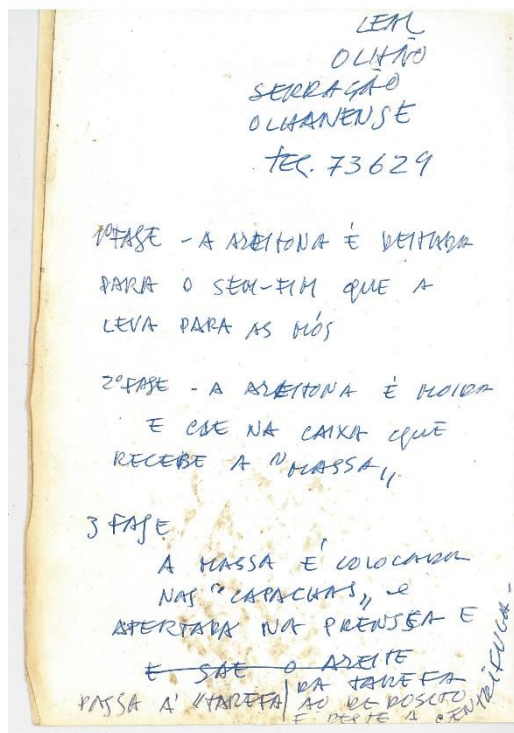 LEAL
OLHÃO
SERRAÇÃO
OLHANENSE
TEL. 73629
1ª FASE - A AZEITONA É DEITADA
PARA O SEM-FIM QUE A
LEVA PARA AS MÓS
2ª FASE - A AZEITONA É MOIDA
E CAE NA CAIXA QUE
RECEBE A "MASSA"
3 FASE
A MASSA É COLOCADA
NAS "CAPACHAS" e
APERTADA NA PRENSA E
E SAE O AZEITE
PASSA À "TAREFA" DA TAREFA
AO DEPOSITO
E DESTE A CENTRIFUGA-